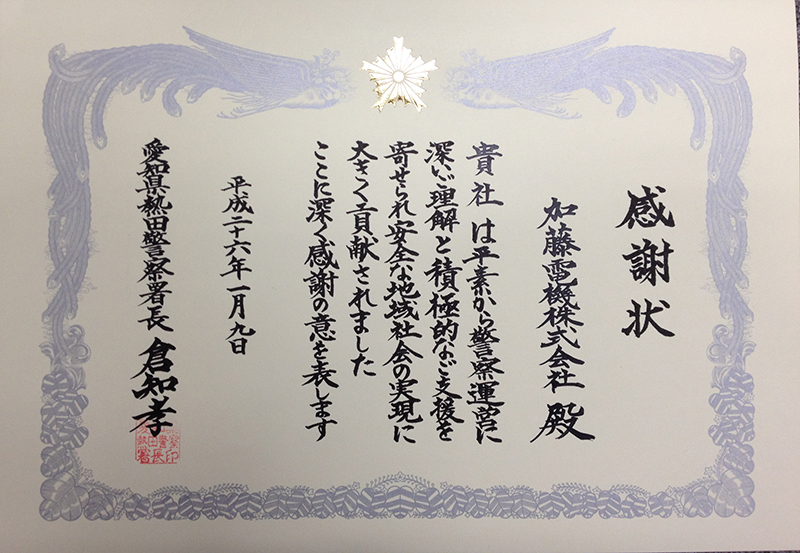 感謝状
加藤電機株式会社 殿
貴社は平素から警察運営に
深いご理解と積極的なご支援を
寄せられ安全な地域社会の実現に
大きく貢献されました
ここに深く感謝の意を表します
平成二十六年一月九日
愛知県熱田警察署長 倉知孝